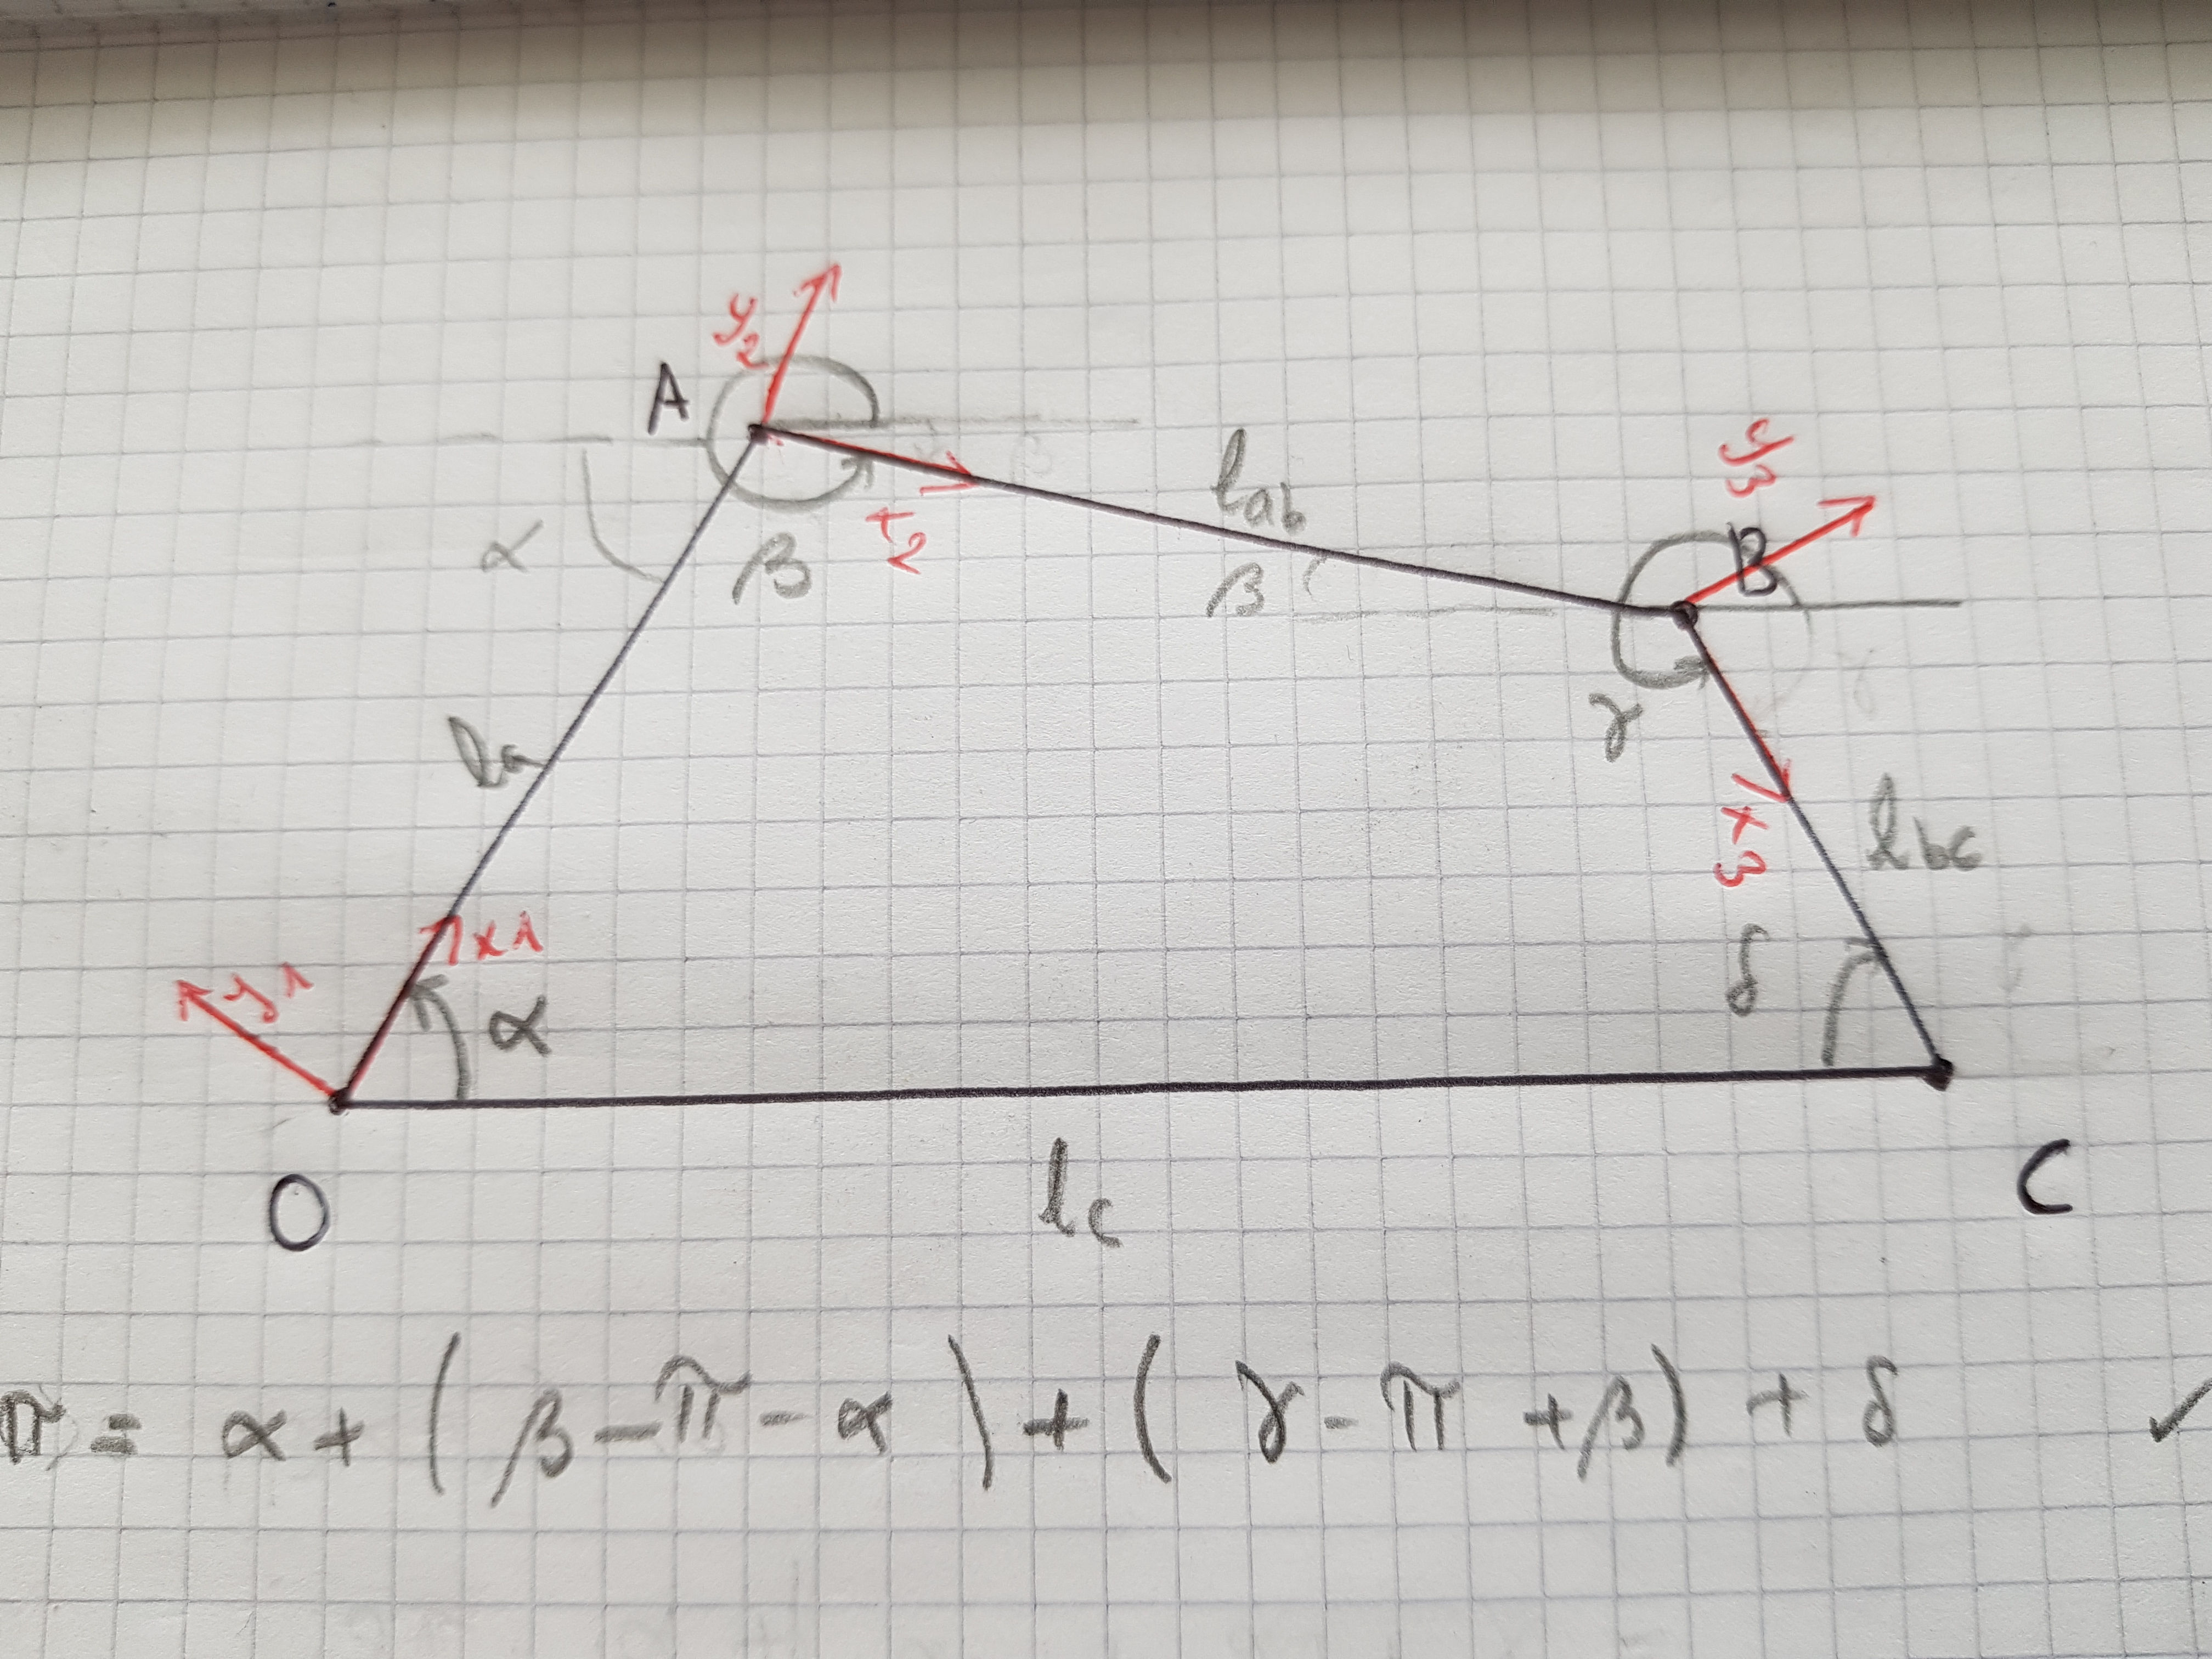 y₂
A
y₃
B
l_ab
x₂
α
β
β
γ
la
x₃
l_bc
x1
δ
y1
α
O
lc
C
π = α + ( β - π - α ) + ( γ - π + β ) + δ ✓